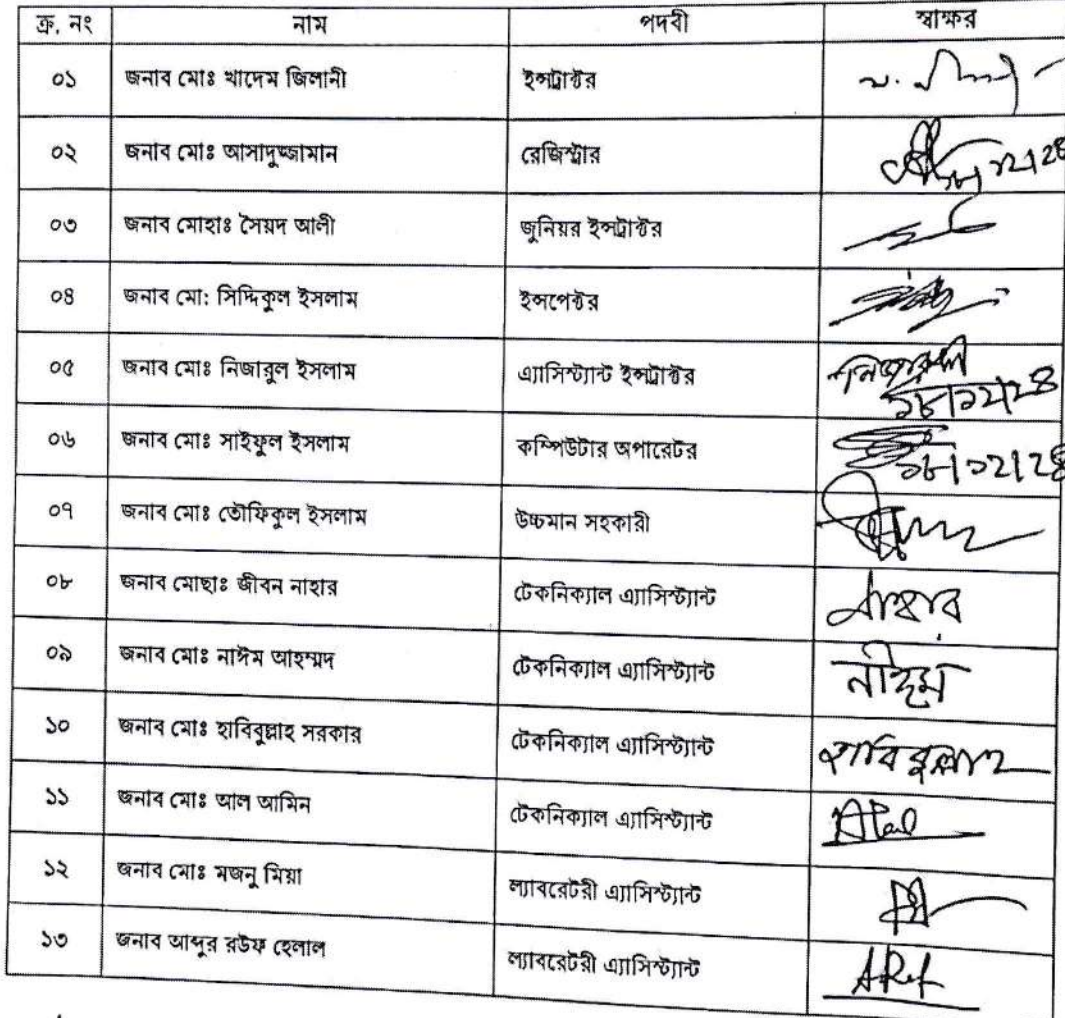 ক্র. নং নাম পদবী স্বাক্ষর
০১ জনাব মোঃ খাদেম জিলানী ইন্সট্রাক্টর
০২ জনাব মোঃ আসাদুজ্জামান রেজিস্ট্রার
০৩ জনাব মোহাঃ সৈয়দ আলী জুনিয়র ইন্সট্রাক্টর
০৪ জনাব মো: সিদ্দিকুল ইসলাম ইন্সপেক্টর
০৫ জনাব মোঃ নিজারুল ইসলাম এ্যাসিস্ট্যান্ট ইন্সট্রাক্টর ১৮/১২/২৪
০৬ জনাব মোঃ সাইফুল ইসলাম কম্পিউটার অপারেটর ১৮/১২/২৪
০৭ জনাব মোঃ তৌফিকুল ইসলাম উচ্চমান সহকারী
০৮ জনাব মোছাঃ জীবন নাহার টেকনিক্যাল এ্যাসিস্ট্যান্ট নাহার
০৯ জনাব মোঃ নাঈম আহম্মদ টেকনিক্যাল এ্যাসিস্ট্যান্ট নাঈম
১০ জনাব মোঃ হাবিবুল্লাহ সরকার টেকনিক্যাল এ্যাসিস্ট্যান্ট হাবিবুল্লাহ
১১ জনাব মোঃ আল আমিন টেকনিক্যাল এ্যাসিস্ট্যান্ট
১২ জনাব মোঃ মজনু মিয়া ল্যাবরেটরী এ্যাসিস্ট্যান্ট
১৩ জনাব আব্দুর রউফ হেলাল ল্যাবরেটরী এ্যাসিস্ট্যান্ট